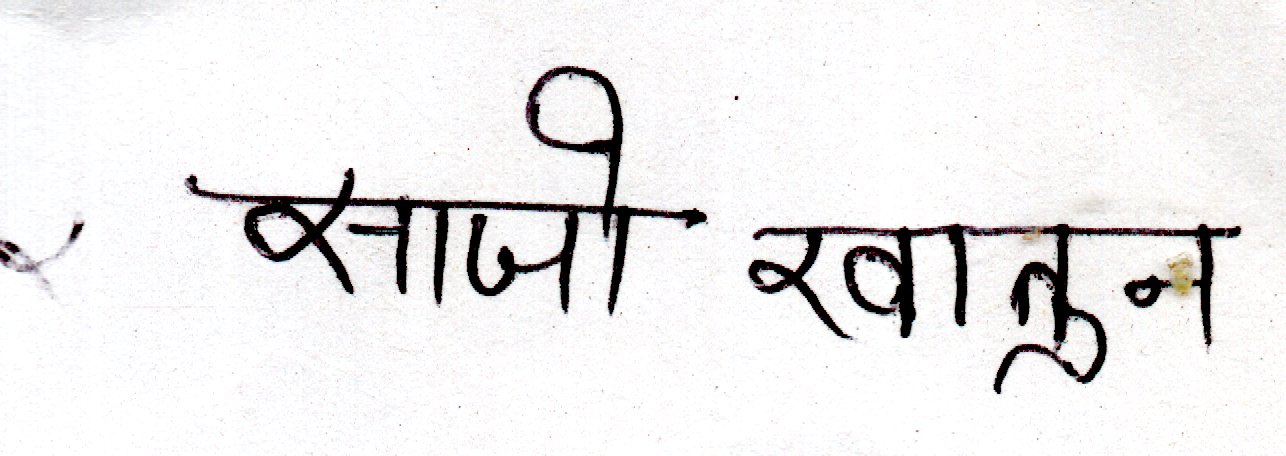 साजो खातुन